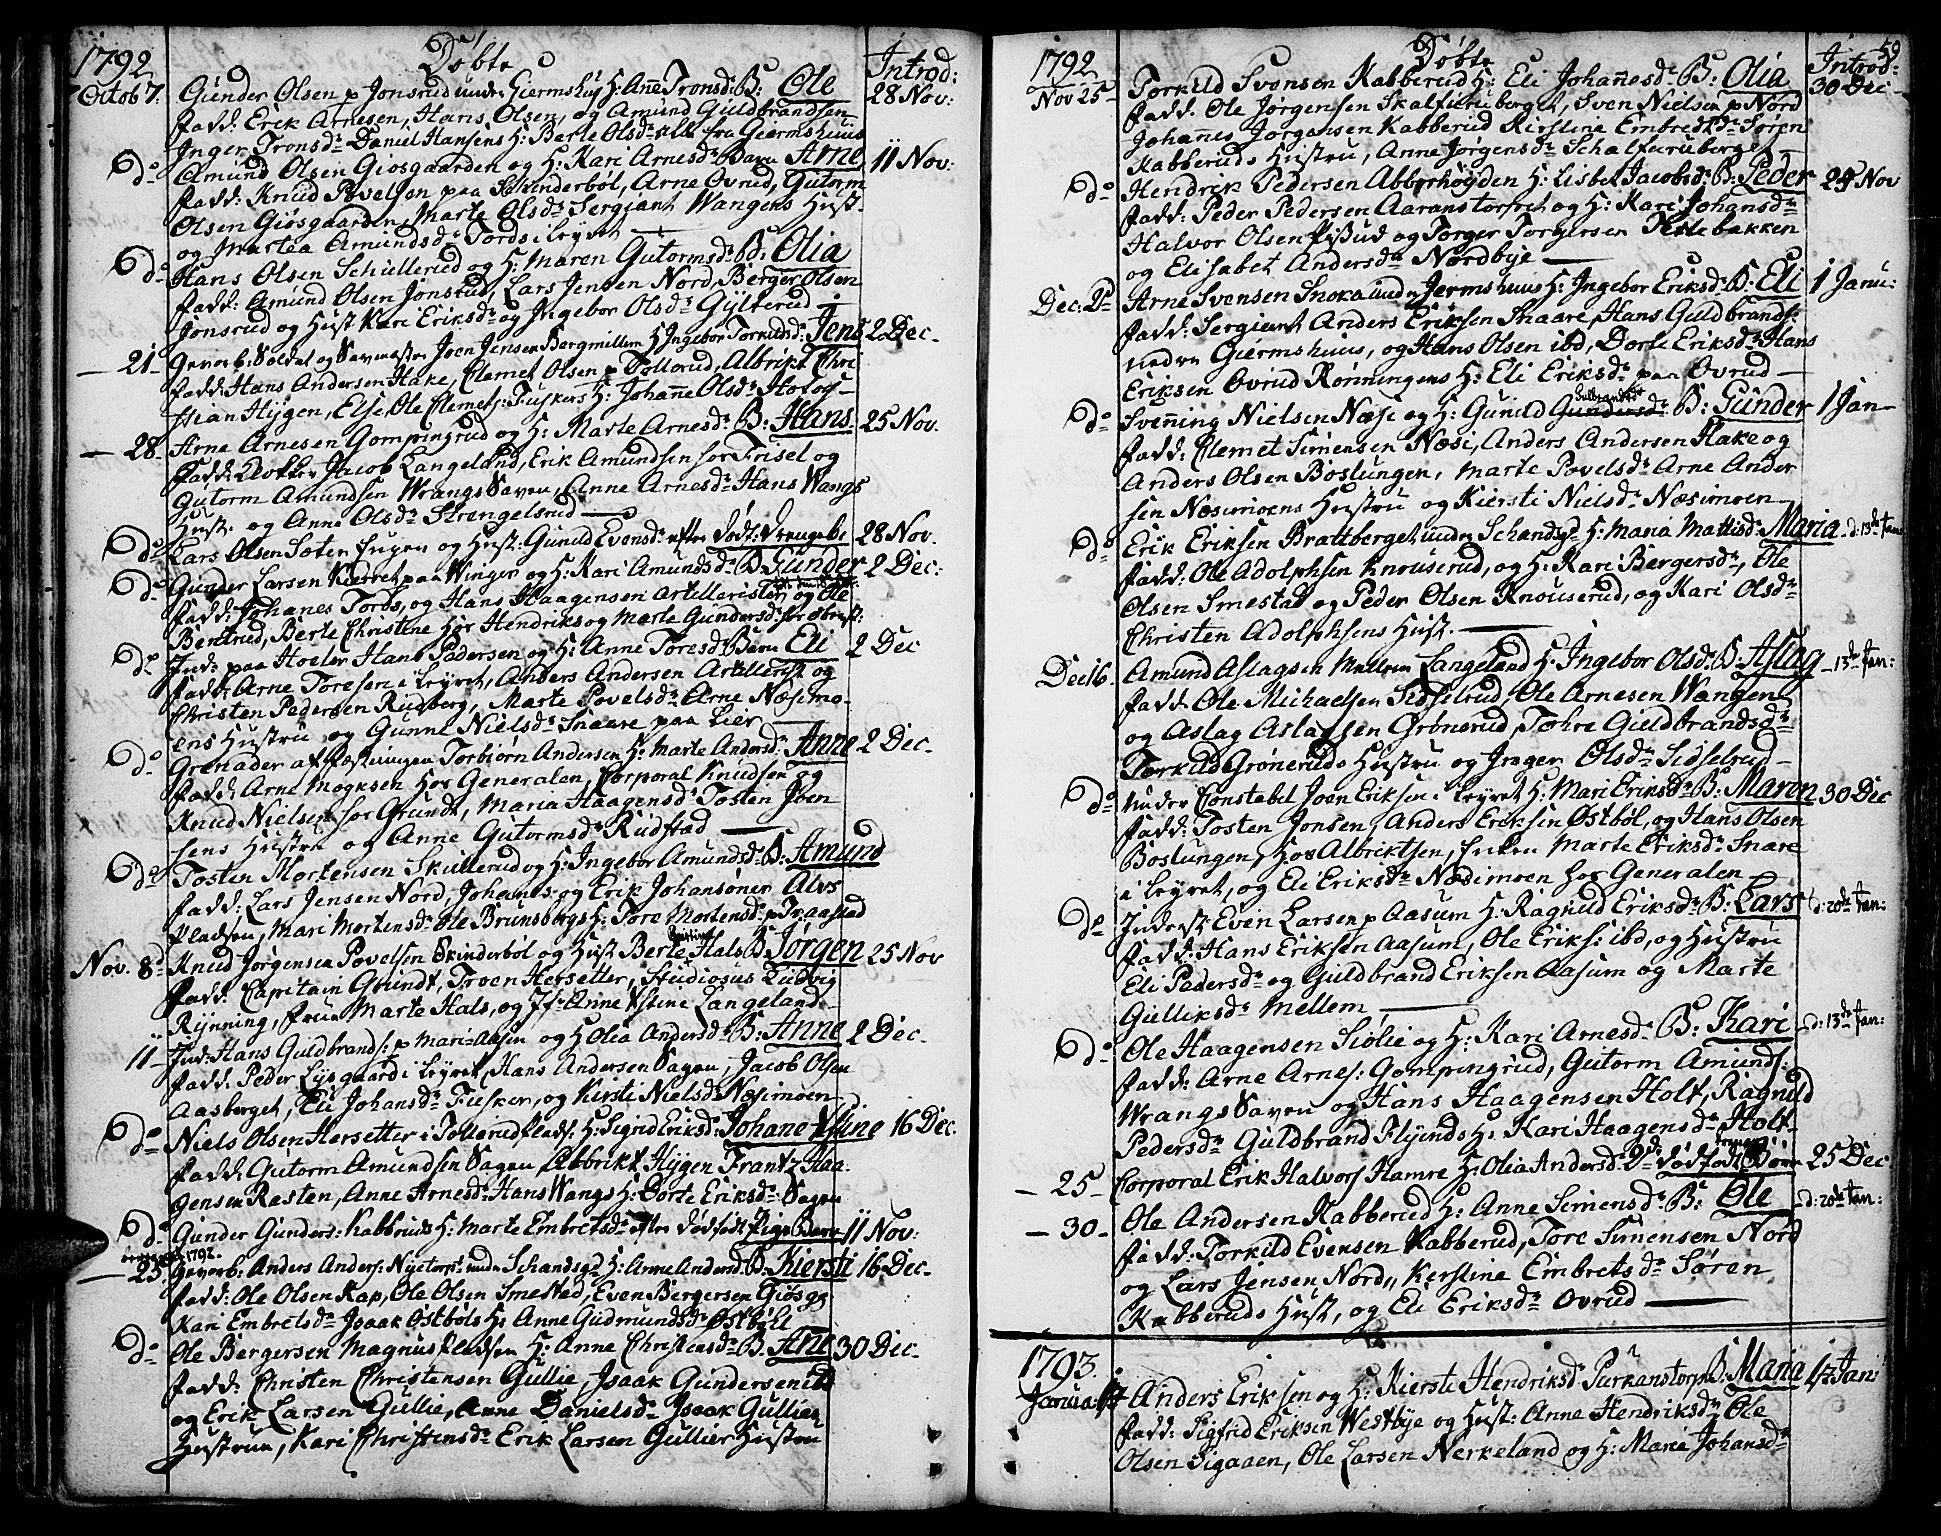 1792 Døbte Introd:
Octob 7. Gunder Olsen p Jonsrud under Giermshuus H: Anne Tronsd: B: Ole 28 Nov:
fadd: Erik Arnesen, Hans Olsen, og Amund Guldbrandsen
Inger Tronsd: Daniel Hansens H: Berte Olsd: alle fra Giermshuus
Do Amund Olsen Giosgaarden og H: Kari Arnesd: Barn Arne 11 Nov:
fadd: Knud Povelsen paa Skinderböl, Arne Ovrud, Gutorm
Olsen Giösgaarden, Marte Olsd: Sergiant Wangens Hust:
og Martea Amundsd: Tords i Leyret
Do Hans Olsen Schullerud og H: Maren Gutormsd: B: Olia
fadd: Amund Olsen Jonsrud, Lars Jensen Nord, Berger Olsen
Jonsrud og Hust Kari Eriksd: og Ingebor Olsd: Gylterud
– 21 – Gevorb: Soldat og Savmester Joen Jensen Bergmillem H Ingebor Torkildsd: Jens 2 Dec –
fadd: Hans Andersen Hake, Clemet Olsen p Tollerud, Albrikt Chri
stian Hygen, Else, Ole Clemets: Fuskers H: Johanne Olsd: Hos os –
– 28 – Arne Arnesen Gompingrud og H: Marte Arnesd: B: Hans. 25 Nov.
fadd: Klokker Jacob Langeland, Erik Amundsen hos Frisel og
Gutorm Amundsen Wrangs Saven, Anne Arnesd: Hans Wangs
Hustr. og Anne Olsd: Strengelsrud
Do Lars Olsen Soten Eugen og Hust: Gunild Evensd: efter Dødf: Drengeb: 28 Nov.
Do Gunder Larsen Kierret paa Winger og H: Kari Amundsd: B Gunder 2 Dec:
fadd: Johanes Tords, og Hans Haagensen Artelleristen og Ole
Bentrud, Berte Christine hos Hendriks og Marte Gundersd:
Do Ind: paa Hoeler Hans Pedersen og H: Anne Toresd: Barn Eli 2 Dec
fadd: Arne Toresen i Leyret, Anders Andersen Artellerist og
Christen Pedersen Rudberg, Marte Povelsd: Arne Næsimo-
ens Hustru og Gunne Nielsd: Snaare paa Lier
Do Grenader af fæstningen Torbiørn Andersen H: Marte Andersd: Anne 2 Dec –
fadd: Arne Mogksen hos Generalen, Corporal Knudsen og
Knud Nielsen hos Grundt, Maria Haagensd: Tosten Joen
sens Hustru og Anne Gutormsd: Rudstad
Do Tosten Mortensen Skullerud og H: Ingebor Amundsd: B: Amund
fadd: Lars Jensen Nord, Johanes og Erik Johansöner Alvs
Pladsen, Mari Mortensd: Ole Brunsbergs H: Tore Mortensd: p Traastad
Nov. 8d Knud Jørgensen Povelsön Skinderböl og Hust Berte Kristine Hals B Jørgen 25 Nov
fadd: Capitain Grundt, Troen Hersetter, Studiosus Ludvig
Rynning, frue Marte Hals, og Jf: Anne Stine Langeland
11 – Ind: Hans Guldbrands: p Mari-Aasen og H Olea Andersd: B: Anne 2 Dec –
fadd: Peder Lysgaard i Leyret, Hans Andersen Sagen, Jacob Olsen
Aasberget, Eli Johansd: Fusker, og Kirsti Nielsd: Næsimoen
Do Niels Olsen Hersetter i Tollerudplads: H: Sigrid Eriksd: Johane Stine 16 Dec.
fadd: Gutorm Amundsen Sagen, Albrikt Hygen, Frantz Haa
gensen Rasten, Anne Arnesd: Hans Wangs H: Dorte Eriksd: Sagen
Do Gunder Gunders: Kabberuds H: Marte Embretsd: efter Dødfødt Pige Barn 11 Nov:
– 25 Gevorb: Anders Anders: Nyetorp: under Schandsgd H: Anne Andersd: B: Kiersti 16 Dec –
fadd: Ole Olsen Kap, Ole Olsen Smestad, Even Bergersen Giösg:
Kari Embretsd: Isaak Østböls H: Anne Gudmundsd: Østböll
Do Ole Bergersen Magnuspladsen H: Anne Christensd: B. Ane 30 Dec –
fadd: Christen Christensen Gullie, Isaak Gundersen ibd
og Erik Larsen Gullie, Anne Danielsd: Isaak Gullies
Hustrue, Kari Christensd: Erik Larsen Gullies Hustru
1792 Døbte Introd: 59
Nov 25 – Torkild Svensen Kabberud H: Eli Johannesd: B: Olia 30 Dec –
fadd: Ole Jørgensen Skalfuruberget, Sven Nielsen p Nord
Johannes Jørgensen Kabberud Kirstine Embretsd: Søren
Kabberuds Hustru, Anne Jørgensd: Schalfuruberget –
Do Hendrik Pedersen Abborhøgden H: Lisbet Jacobsd: B: Peder 29 Nov
fadd: Peder Pedersen Aaranstorpet og H: Kari Johansd:
Halvor Olsen Pissud og Torger Torgersen Tittebakken
og Elisabet Andersd: Nordbye
Dec. 2d Arne Svensen Snoka under Jermshuus H: Ingebor Eriksd: B: Eli 1 Janu:
fadd: Sergiant Anders Eriksen Snaare, Hans Guldbrands:
neden Giermshuus, og Hans Olsen ibd, Dorte Eriksd: Hans
Eriksen Ovrud Rønningens H: Eli Eriksd: paa Ovrud
Do Svenning Nielsen Næse og H: Gunild Gulbrandsd: B: Gunder 1 Jan –
fadd: Clemet Simensen Næsi, Anders Andersen Hake og
Anders Olsen Boslungen, Marte Povelsd: Arne Ander
sen Næsimoens Hustru og Kiersti Nielsd: Næsimoen
Do Erik Eriksen Brattberget under Schandsgd H: Maria Mattisd: Maria – d: 13de Jan:
fadd: Ole Adolphsen Knouserud, og H: Kari Bergersd:, Ole
Olsen Smestad og Peder Olsen Knouserud, og Kari Olsd:
Christen Adolphsens Hust.
Dec 16. Amund Aslagsen Mellem Langeland H: Ingebor Olsd: B. Aslag – 13de Jan:
fadd: Ole Michaelsen Sidselrud, Ole Arnesen Wangen
og Aslag Aslagsen Grønerud, Tohre Guldbrandsd:
Torkild Grøneruds Hustru og Inger Olsd: Sidselrud –
Do Under Constabel Joen Eriksen i Leyret H: Mari Eriksd: B: Maren 30 Dec
fadd: Tosten Jonsen, Anders Eriksen Østböl, og Hans Olsen
Boslungen, hos Albriktsen, Enken Marte Eriksd: Snare
i Leyret, og Eli Eriksd: Næsimoen hos Generalen
Do Inderst Even Larsen p Aasum H: Ragnild Eriksd: B: Lars d: 20de Jan:
fadd: Hans Eriksen Aasum, Ole Eriks: ibd, og Hustru
Eli Pedersd: og Guldbrand Eriksen Aasum og Marte
Gulliksd: Mellem
Do Ole Haagensen Siölie og H: Kari Arnesd: B: Kari – d: 13de Jan:
fadd: Arne Arnes: Gompingrud, Gutorm Amunds:
Wrangs Saven og Hans Haagensen Holt, Ragnild
Pedersd: Guldbrand Flyends H: Kari Haagensd: Holt –
– 25 – Corporal Erik Halvors Hamre H: Olia Andersd: dødfødt Børn 25 Dec
– 30 – Ole Andersen Kabberud H: Anne Simensd: B: Ole – d: 20de Jan:
fadd: Torkild Evensen Kabberud, Tore Simensen Nord
og Lars Jensen Nord, Kerstine Embretsd: Søren
Kabberuds Hust, og Eli Eriksd: Ovrud
1793.
Janua: 17 Anders Eriksen og H: Kiersti Hendriksd: Purkanstorp B. Maria 17 Jan:
fadd: Sigfrid Eriksen Westbye og Hust: Anne Hendriksd: Ole
Olsen Sigaaen, Ole Larsen Nerkeland og H: Maria Johansd: